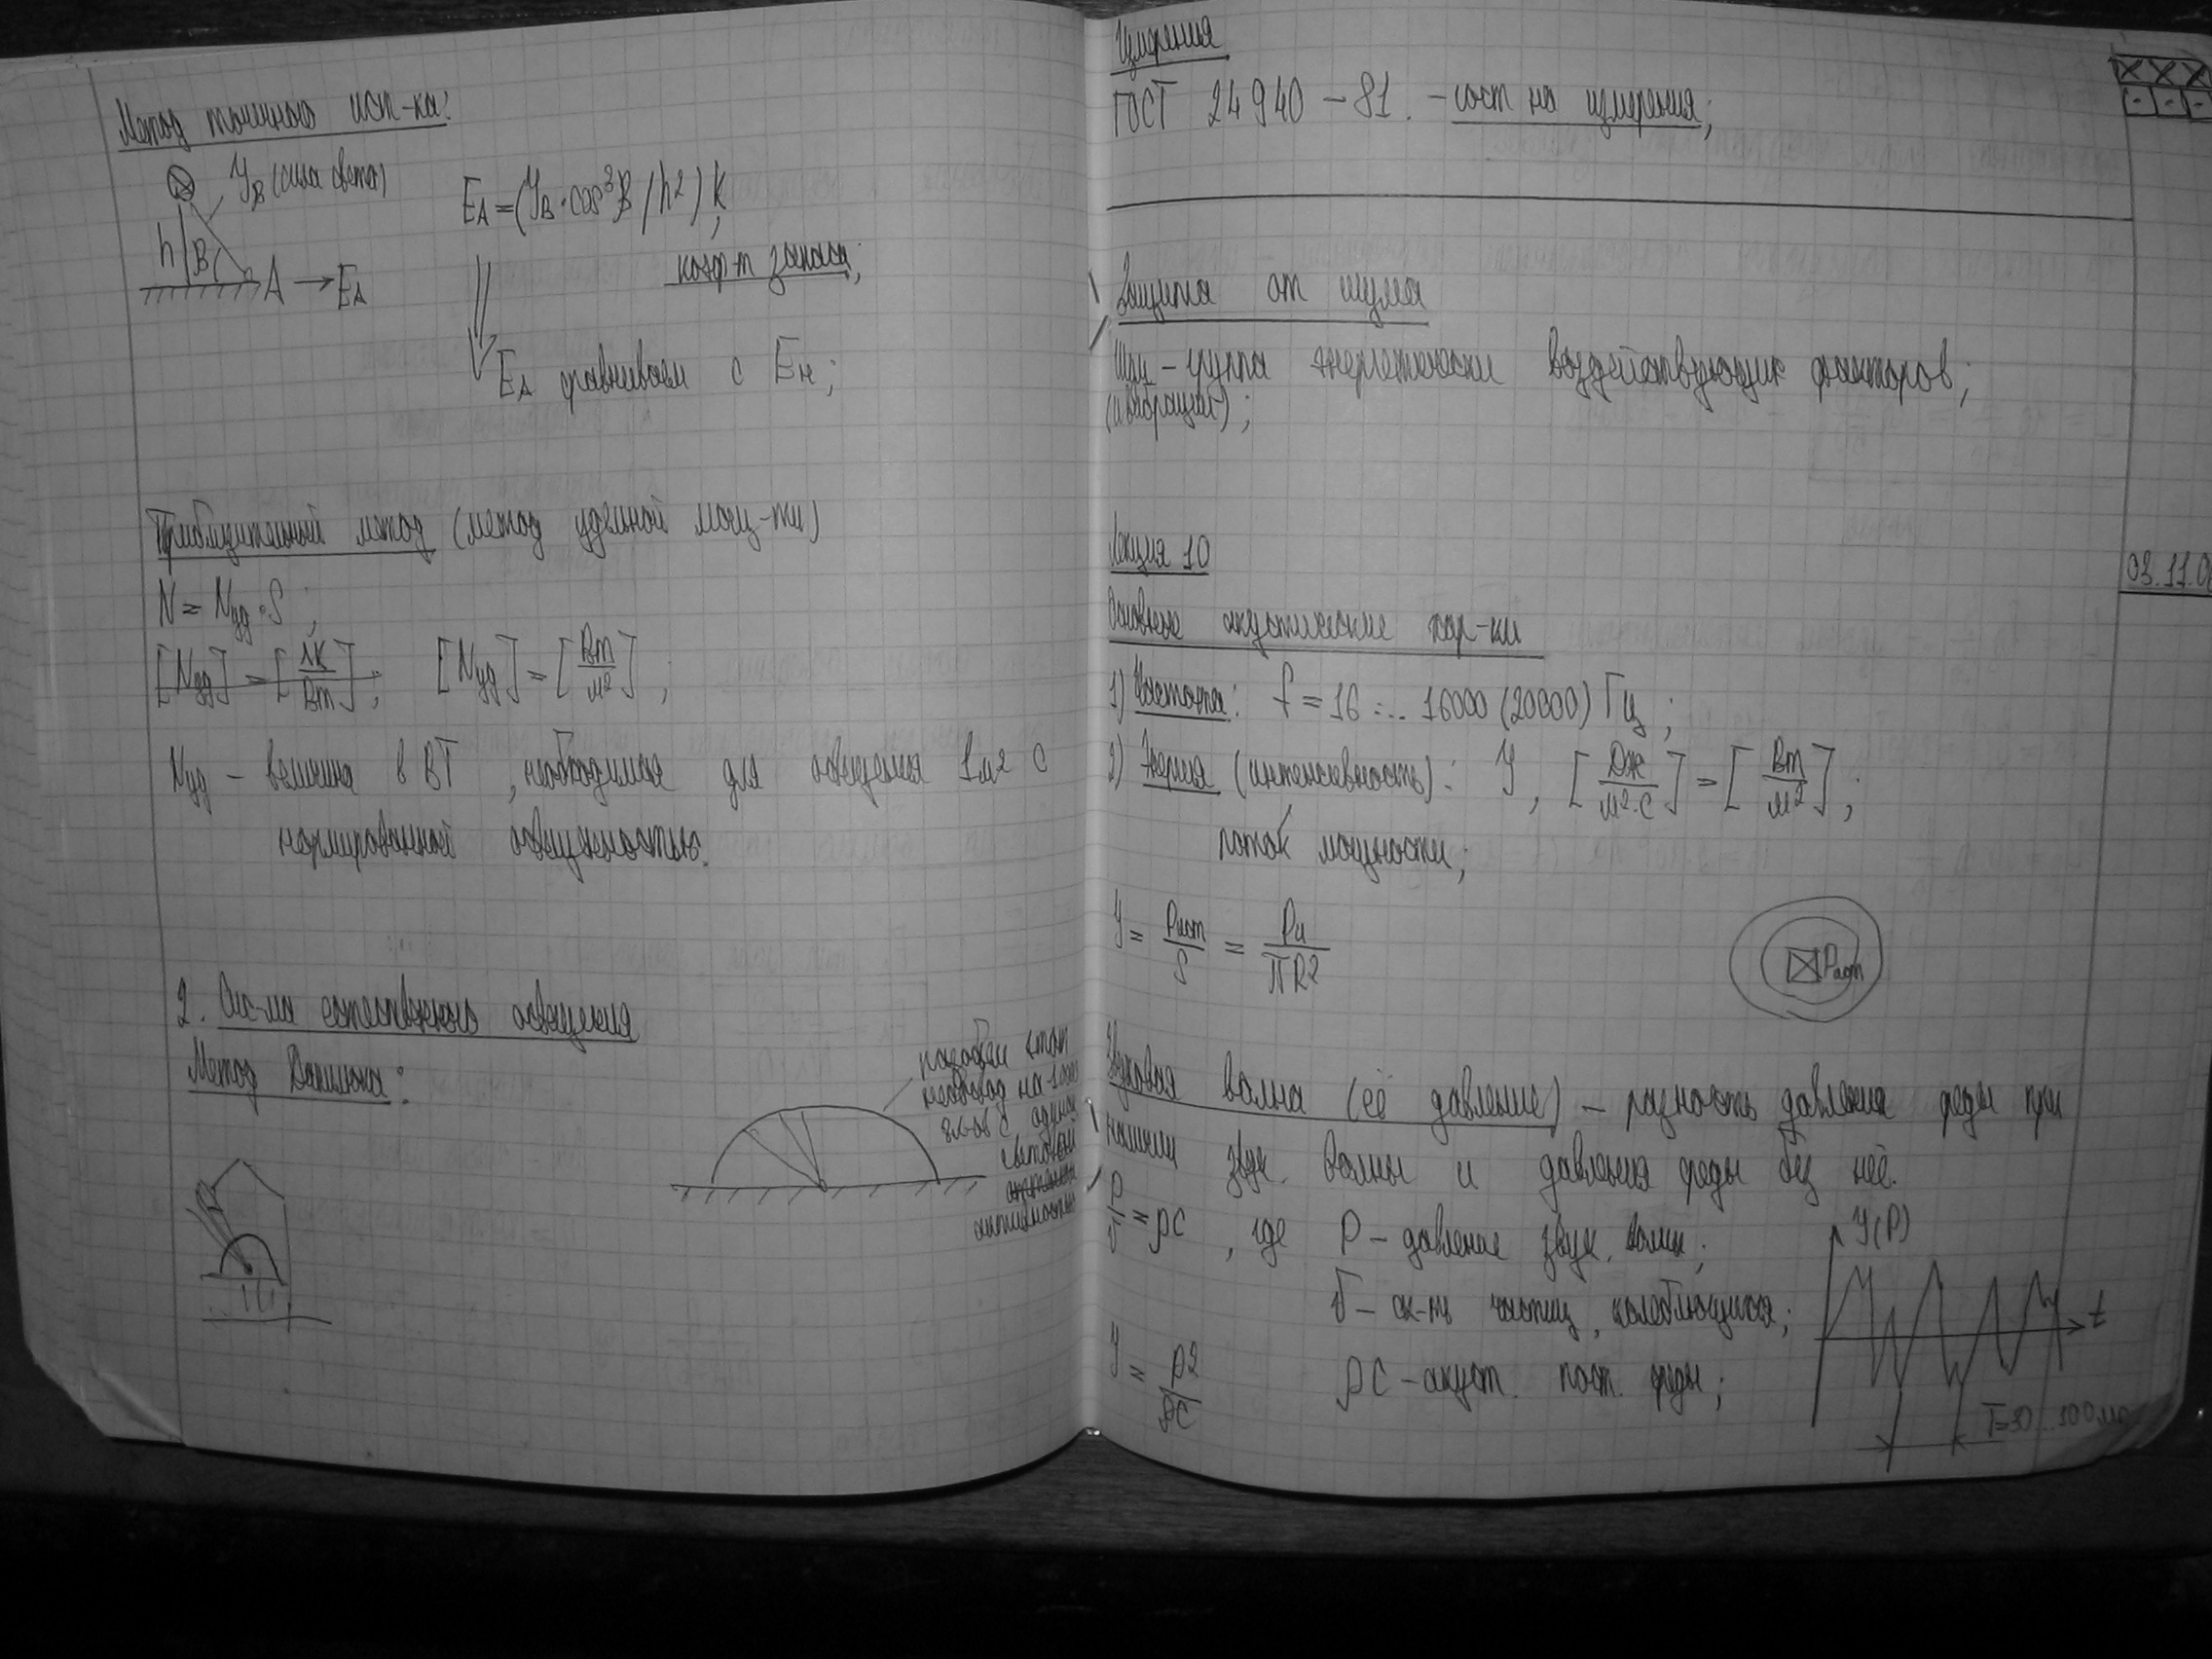 Метод точечного ист-ка:
Jв (сила света)
h
B
A → EА
EА = (Jв · cos³B / h²) K;
коэф-т запаса;
EА сравниваем с Eн;
Приблизительный метод (метод удельной мощ-ти)
N = Nуд · S;
[Nуд] = [лк/Вт]; [Nуд] = [Вт/м²];
Nуд – величина в ВТ, необходимая для освещения 1м² с
нормированной освещенностью.
2. Сис-ма естественного освещения
Метод Данилюка:
небосвод на
с одинак
световой
активностью
Измерения
ГОСТ 24940 – 81. – гост на измерения;
Защита от шума
Шум – группа энергетически воздействующих факторов;
(и вибрации);
Лекция 10
03.11.0
Основные акустические хар-ки
1) Частота: f = 16 ... 16000 (20000) Гц;
2) Энергия (интенсивность): J, [Дж/м²·с] = [Вт/м²];
поток мощности;
J = Pист/S = Pи/ПR²
Pист
Звуковая волна (её давление) – разность давления среды при
наличии звук. волны и давления среды без неё.
P/V = ρC, где P – давление звук. волны;
J(P)
V – ск-ть частиц, колеблющихся;
t
J = P²/ρC
ρC – акуст. пост. среды;
T=30...100 мс